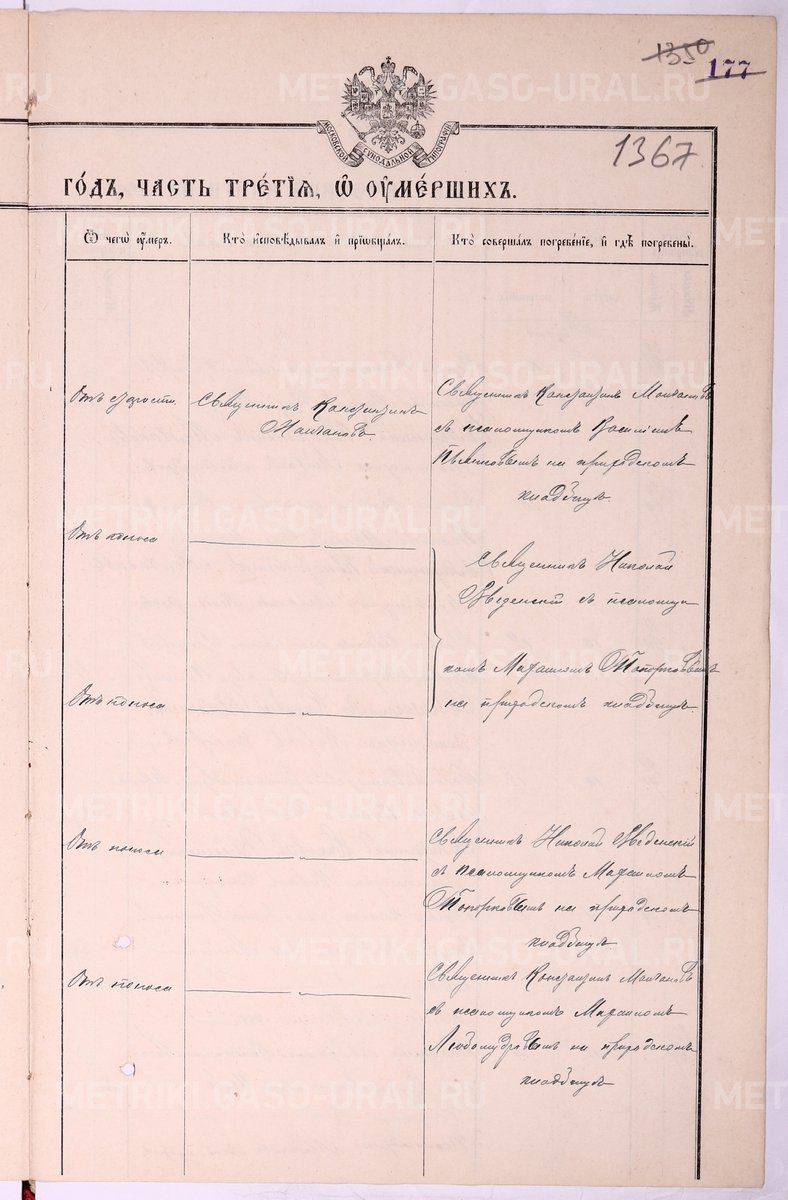 1350
177
МОСКОВСКОЙ СѴНОДАЛЬНОЙ ТИПОГРАФІИ
1367
ГО́ДЪ, ЧАСТЬ ТРЕ́ТІѦ, Ѡ ОУ҆МЕ́РШИХЪ.
Ѿ чегѡ̀ оу҆́меръ.
Кто̀ и҆сповѣ́дывалъ и҆ прїѡбща́лъ.
Кто̀ соверша́лъ погребе́нїе, и҆ гдѣ̀ погребены̀.
Отъ старости.
Священникъ Константинъ
Молчановъ.
Священникъ Константинъ Молчановъ
съ псаломщикомъ Василіемъ
на приходскомъ
кладбищѣ
Отъ поноса
Священникъ Николай
Введенскій съ псаломщи
комъ Михаиломъ Топорковымъ
на приходскомъ кладбищѣ.
Отъ поноса
Отъ поноса
Священникъ Николай Введенскій
съ псаломщикомъ Михаиломъ
Топорковымъ на приходскомъ
кладбищѣ
Отъ поноса
Священникъ Константинъ Молчановъ
съ псаломщикомъ Михаиломъ
Любомудровымъ на приходскомъ
кладбищѣ
METRIKI.GASO-URAL.RU